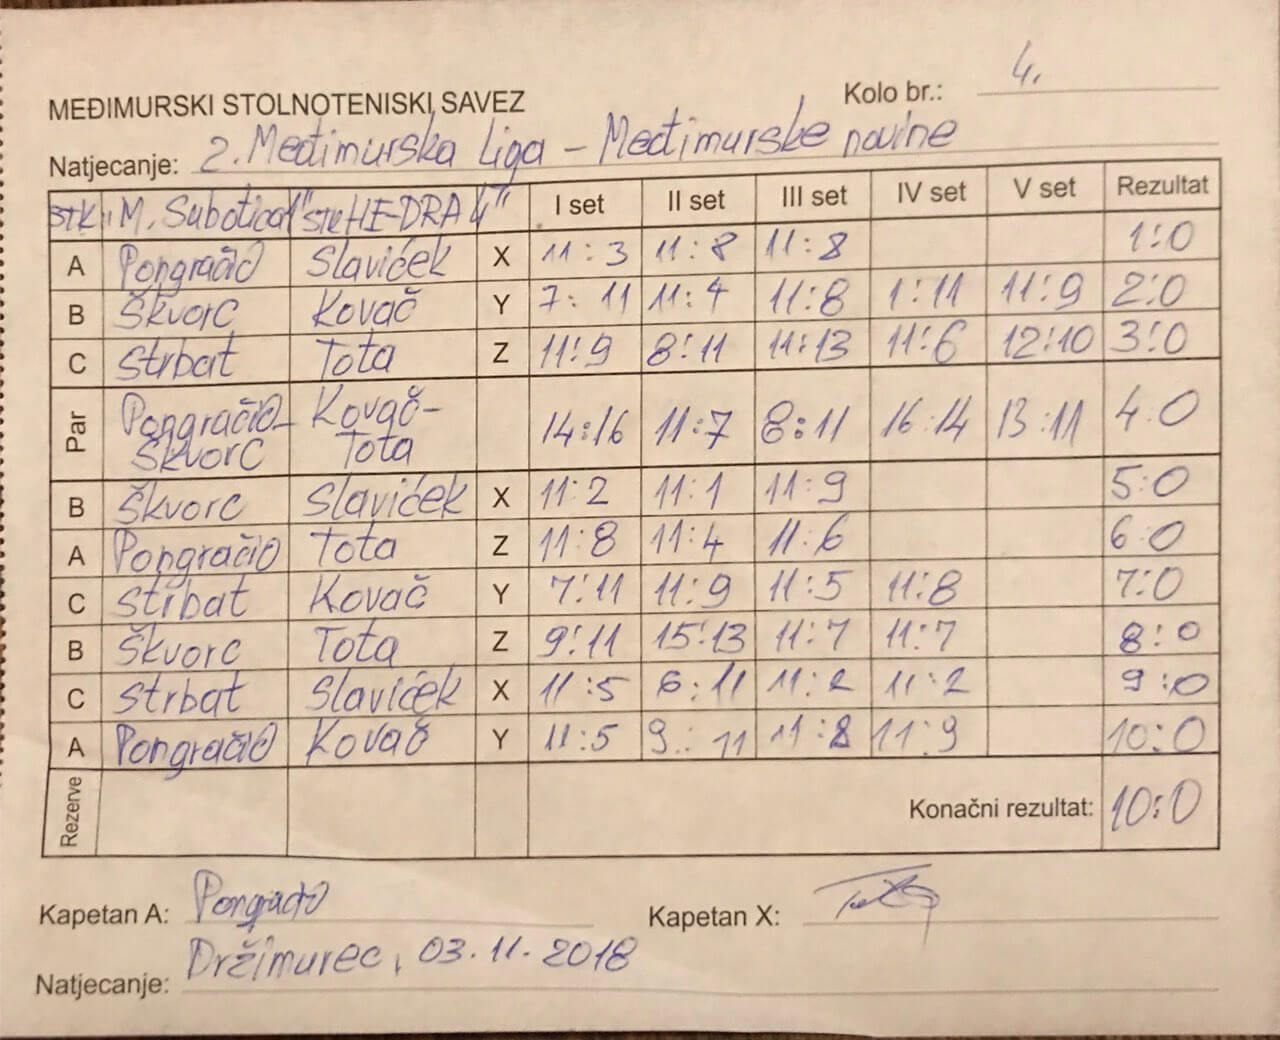 Kolo br.: 4.
MEĐIMURSKI STOLNOTENISKI SAVEZ
Natjecanje: 2. Međimurska Liga - Međimurske novine
BTK "M. Subotica" "STK HE-DRA 4" I set II set III set IV set V set Rezultat
A Pongračić Slaviček X 11:3 11:8 11:8 1:0
B Škvorc Kovač Y 7:11 11:4 11:8 1:11 11:9 2:0
C Strbat Tota Z 11:9 8:11 11:13 11:6 12:10 3:0
Par Pongračić- Kovač- 14:16 11:7 8:11 16:14 13:11 4:0
Škvorc Tota
B Škvorc Slaviček X 11:2 11:1 11:9 5:0
A Pongračić Tota Z 11:8 11:4 11:6 6:0
C Strbat Kovač Y 7:11 11:9 11:5 11:8 7:0
B Škvorc Tota Z 9:11 15:13 11:7 11:7 8:0
C Strbat Slaviček X 11:5 6:11 11:2 11:2 9:0
A Pongračić Kovač Y 11:5 9:11 11:8 11:9 10:0
Rezerve Konačni rezultat: 10:0
Kapetan A: Pongračić Kapetan X:
Držimurec, 03.11.2018
Natjecanje: